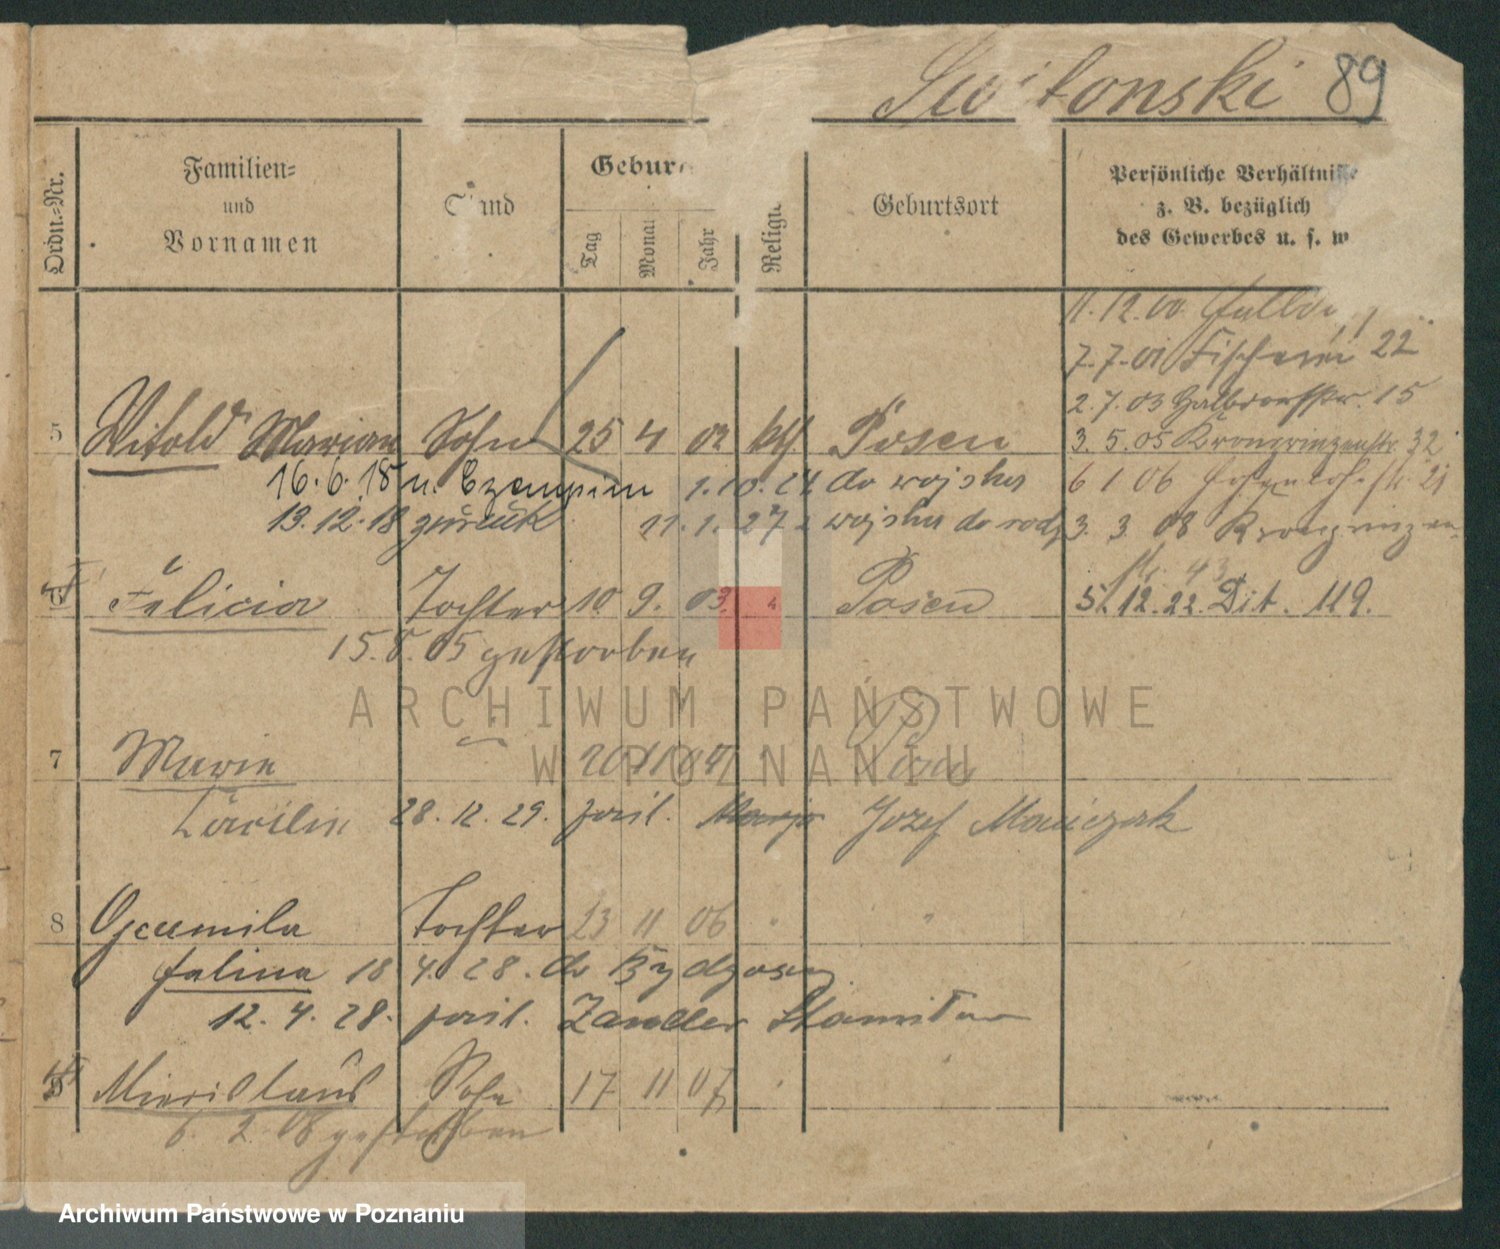 Switonski 89
Ordn.=Nr.
Familien=
und
Vornamen
Stand
Geburts
Tag
Monat
Jahr
Religion
Geburtsort
Persönliche Verhältnisse
z. B. bezüglich
des Gewerbes u. s. w.
11.12.00
7.7.01 Fischerei 22
2.7.03 Halbdorfstr. 15
5 Witold Marian Sohn 25 4 02 kth. Posen 3.5.05 Kronprinzenstr. 32
16.6.18 n. Czempin 1.10.24 do wojska 6 1 06
13.12.18 zurück 11.1.27 z wojska do rodz 3. 3 08 Kronprinzen
str. 43
6 Felicia Tochter 10 9. 03. " Posen 5.12.22. Dit. 119.
15.8.05 gestorben
7 Marie " 20 11 04 " Posen
Cäcilie 28.12.29. Józef
8 Ludmila Tochter 23 11 06 " "
Halina 18 4. 28. do Bydgoszcz
12.4.28.
9 Miecislaus Sohn 17 11 07 "
6. 2. 08 gestorben
ARCHIWUM PAŃSTWOWE
W POZNANIU
Archiwum Państwowe w Poznaniu